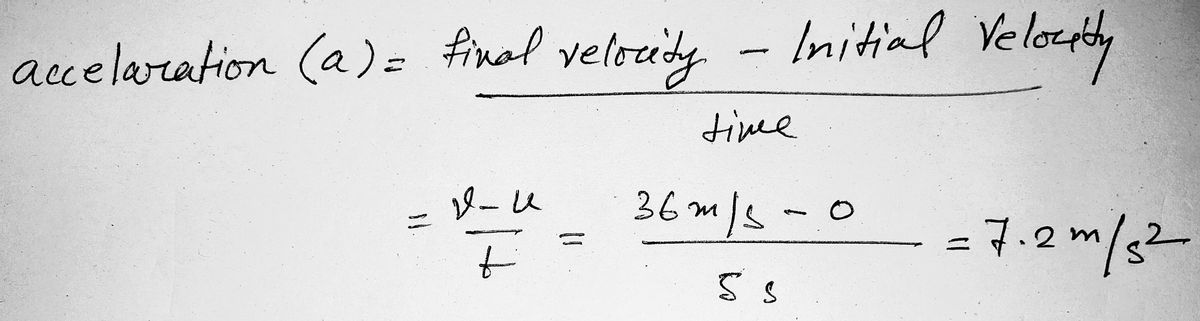 accelaration (a) = final velocity - Initial Velocity
time
= v-u / t = 36 m/s - 0 / 5 s = 7.2 m/s²